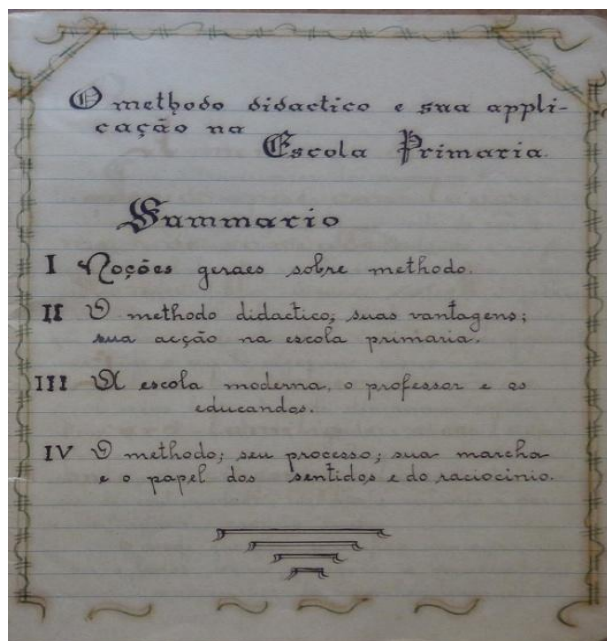 O methodo didactico e sua appli-
cação na
Escola Primaria.
Summario
I Noções geraes sobre methodo.
II O methodo didactico; suas vantagens;
sua acção na escola primaria.
III A escola moderna, o professor e os
educandos.
IV O methodo; seu processo; sua marcha
e o papel dos sentidos e do raciocinio.